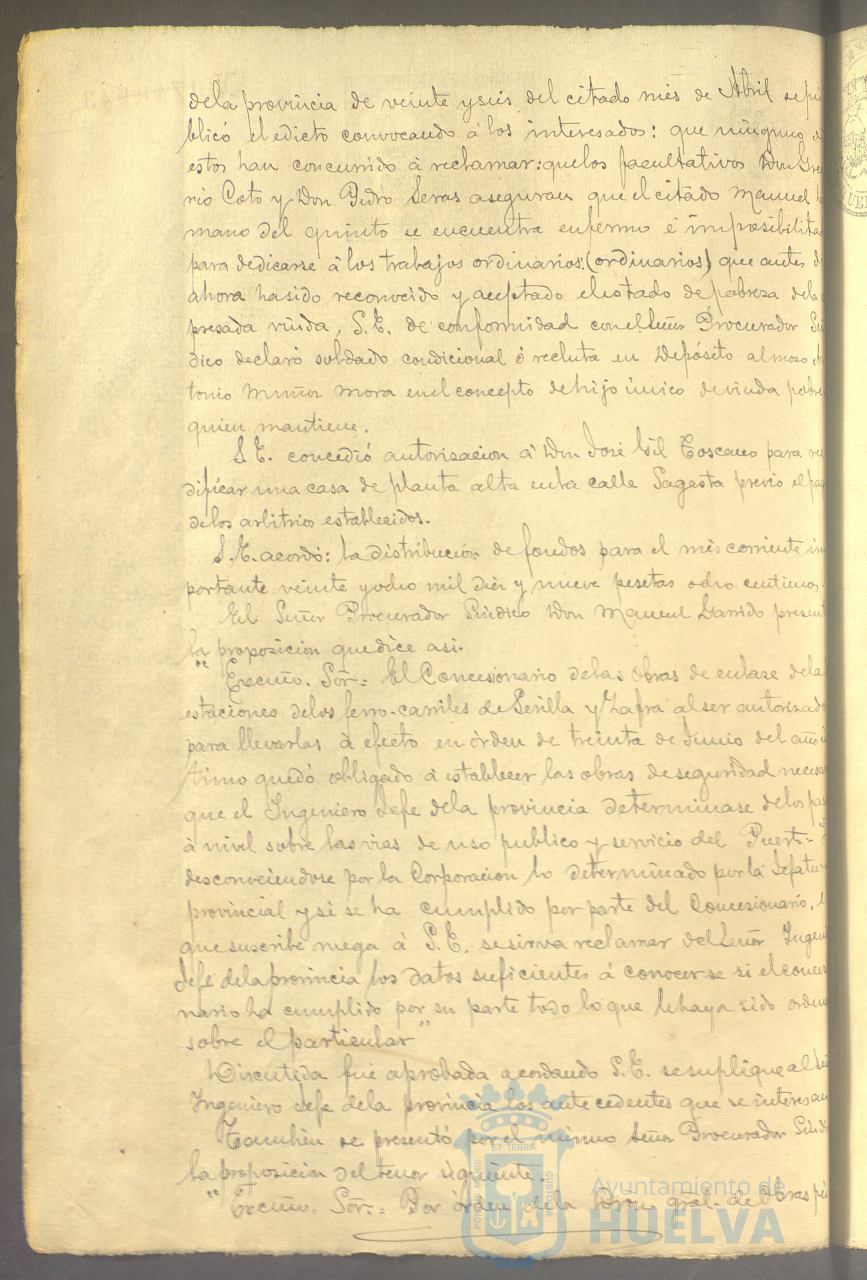 dela provincia de veinte y seis del citado més de Abril se pu
blicó el edicto convocando á los interesados: que ninguno
estos han concurrido á reclamar: que los facultativos Don Gre
rio Coto y Don Pedro Seras aseguran que el citado Manuel h
mano del quinto se encuentra enfermo é imposibilita
para dedicarse á los trabajos ordinarios: (ordinarios) que antes d
ahora ha sido reconocido y aceptado el estado de pobreza dela
presada viuda, S.E. de conformidad con el Señor Procurador Sin
dico declaró soldado condicional ó recluta en Depósito al mozo
tonio Muñoz Mora en el concepto de hijo único de viuda pobre
quien mantiene.
S.E. concedió autorizacion á Don José Gil Toscano para re
dificar una casa de planta alta en la calle Sagasta previo el pa
delos arbitrios establecidos.
S.E. acordó: la distribución de fondos para el més corriente im
portante veinte y ocho mil diez y nueve pesetas ocho centimos.
El Señor Procurador Sindico Don Manuel Garrido present
la proposicion que dice asi.
"Excmo. Sõr = El Concesionario delas obras de enlace dela
estaciones delos ferro-carriles de Sevilla y Zafra al ser autorizado
para llevarlas á efecto en órden de treinta de Junio del año
timo quedó obligado á establecer las obras de seguridad neces
que el Ingeniero Jefe dela provincia determinase delos pa
á nivel sobre las vias de uso publico y servicio del Puert=
desconociendose por la Corporacion lo determinado por la Jefatur
provincial y si se ha cumplido por parte del Concesionario,
que suscribe ruega á S.E. se sirva reclamar del Señor Ingen
Jefe dela provincia los datos suficientes á conocerse si el conces
nario ha cumplido por su parte todo lo que le haya sido orden
sobre el particular"
Discutida fué aprobada acordando S.E. se suplique al Señ
Ingeniero Jefe dela provincia los antecedentes que se interesan
Tambien se presentó por el mismo Señor Procurador Sindi
la proposicion del tenor siguiente.
"Excmo. Sõr.= Por órden dela Dirón gral. de Obras pú
PORTUS MARIS ET TERRÆ CUSTODIA
Ayuntamiento de
HUELVA